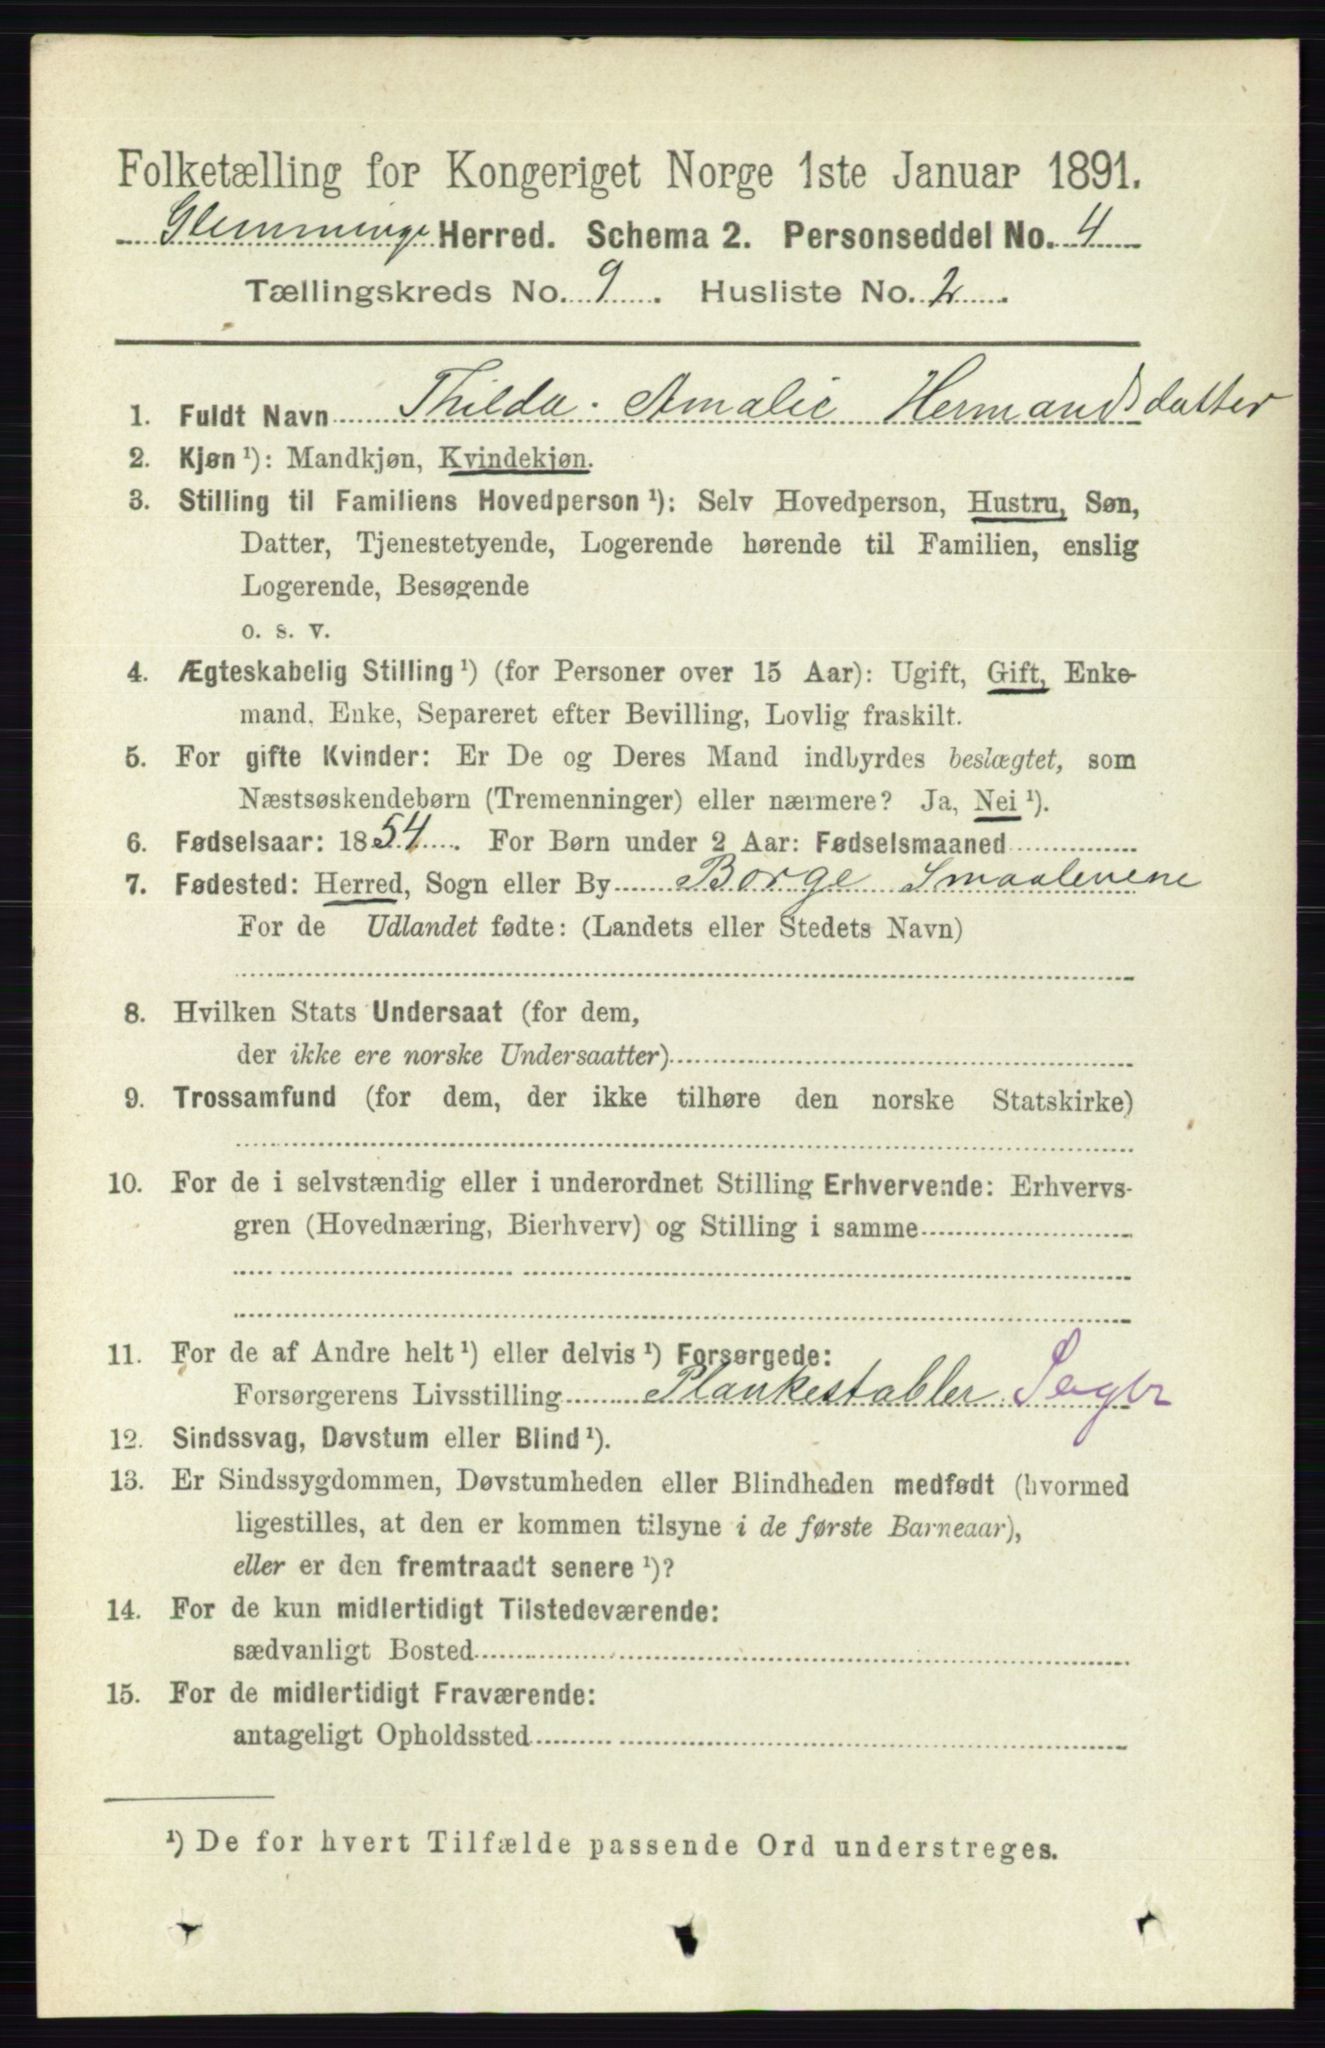 Folketælling for Kongeriget Norge 1ste Januar 1891.
Glemminge Herred. Schema 2. Personseddel No. 4
Tællingskreds No. 9. Husliste No. 2.
1. Fuldt Navn Thilda Amalie Hermandsdatter
2. Kjøn ¹): Mandkjøn, Kvindekjøn.
3. Stilling til Familiens Hovedperson ¹): Selv Hovedperson, Hustru, Søn,
Datter, Tjenestetyende, Logerende hørende til Familien, enslig
Logerende, Besøgende
o. s. v.
4. Ægteskabelig Stilling ¹) (for Personer over 15 Aar): Ugift, Gift, Enke-
mand, Enke, Separeret efter Bevilling, Lovlig fraskilt.
5. For gifte Kvinder: Er De og Deres Mand indbyrdes beslægtet, som
Næstsøskendebørn (Tremenninger) eller nærmere? Ja, Nei ¹).
6. Fødselsaar: 1854. For Børn under 2 Aar: Fødselsmaaned
7. Fødested: Herred, Sogn eller By Borge Smaalenene
For de Udlandet fødte: (Landets eller Stedets Navn)
8. Hvilken Stats Undersaat (for dem,
der ikke ere norske Undersaatter)
9. Trossamfund (for dem, der ikke tilhøre den norske Statskirke)
10. For de i selvstændig eller i underordnet Stilling Erhvervende: Erhvervs-
gren (Hovednæring, Bierhverv) og Stilling i samme
11. For de af Andre helt ¹) eller delvis ¹) Forsørgede:
Forsørgerens Livsstilling Plankestabler
12. Sindssvag, Døvstum eller Blind ¹).
13. Er Sindssygdommen, Døvstumheden eller Blindheden medfødt (hvormed
ligestilles, at den er kommen tilsyne i de første Barneaar),
eller er den fremtraadt senere ¹)?
14. For de kun midlertidigt Tilstedeværende:
sædvanligt Bosted
15. For de midlertidigt Fraværende:
antageligt Opholdssted
¹) De for hvert Tilfælde passende Ord understreges.